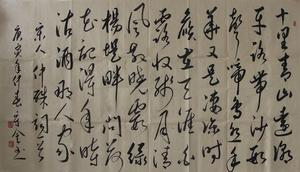 十里青山遠潮
平路帶沙數
聲啼鳥怨年
華又是凄凉時
候在天涯白
露收殘月清
風散曉霞綠
楊堤畔問荷
花記得年時
沽酒那人家
宋人仲殊詞
庚寅年仲春